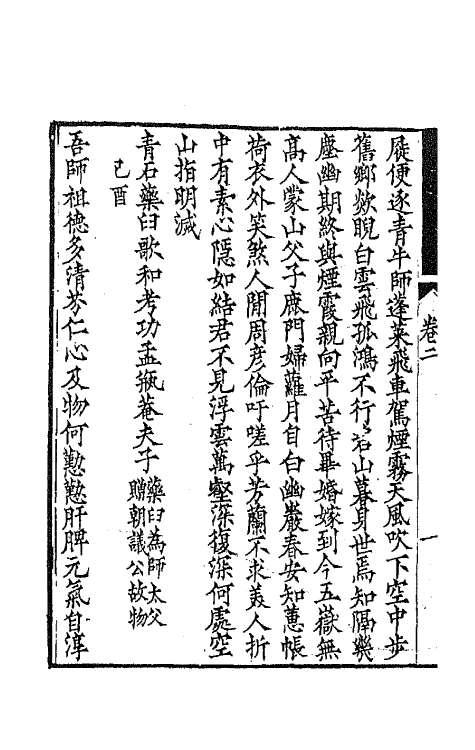 屣便逐青牛師蓬萊飛車駕煙霧天風吹下空中步
舊鄉欻睨白雲飛孤鴻不行名山暮身世焉知隔幾
塵幽期終與煙霞親向平苦待畢婚嫁到今五嶽無
高人蒙山父子鹿門婦蘿月自白幽巖春安知蕙帳
荷衣外笑煞人閒周彥倫吁嗟乎芳蘭不求美人折
中有素心隱如結君不見浮雲萬壑深復深何處空
山指明滅
青石藥臼歌和考功孟瓶菴夫子藥臼為師太父贈朝議公故物
己酉
吾師祖德多清芬仁心及物何懃懃肝脾元氣自淳
卷二
一